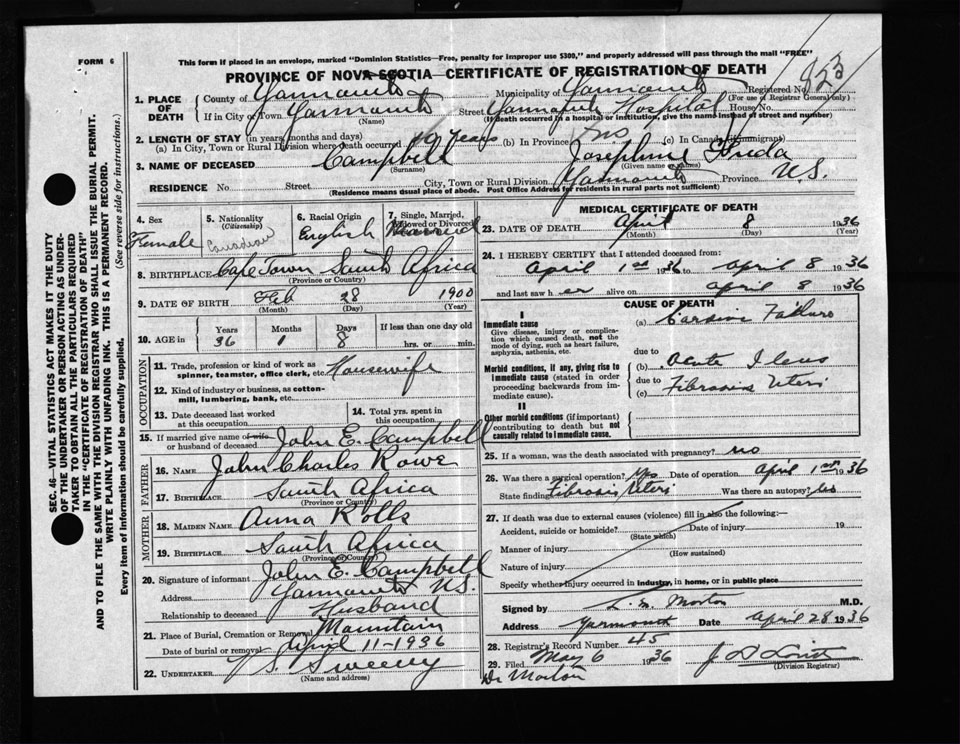 FORM 6
This form if placed in an envelope, marked "Dominion Statistics—Free, penalty for improper use $300," and properly addressed will pass through the mail "FREE"
PROVINCE OF NOVA SCOTIA—CERTIFICATE OF REGISTRATION OF DEATH
Registered No. 823
(For use of Registrar General only)
1. PLACE OF DEATH
County of Yarmouth Municipality of Yarmouth
If in City or Town Yarmouth Street Yarmouth Hospital House No.
(Name) (If death occurred in a hospital or institution, give the name instead of street and number)
2. LENGTH OF STAY (in years, months and days)
(a) In City, Town or Rural Division where death occurred years (b) In Province (c) In Canada (if immigrant)
3. NAME OF DECEASED Campbell Josephine
(Surname) (Given name or names)
RESIDENCE No. Street City, Town or Rural Division Yarmouth Province N.S.
(Residence means usual place of abode. Post Office Address for residents in rural parts not sufficient)
4. Sex Female
5. Nationality (Citizenship) Canadian
6. Racial Origin English
7. Single, Married, Widowed or Divorced Married
8. BIRTHPLACE Cape Town South Africa
(Province or Country)
9. DATE OF BIRTH Feb 28 1900
(Month) (Day) (Year)
10. AGE in Years 36 Months 1 Days 8 If less than one day old hrs. or min.
OCCUPATION
11. Trade, profession or kind of work as spinner, teamster, office clerk, etc. Housewife
12. Kind of industry or business, as cotton-mill, lumbering, bank, etc.
13. Date deceased last worked at this occupation
14. Total yrs. spent in this occupation
15. If married give name of wife or husband of deceased John E. Campbell
FATHER
16. NAME John Charles Rowe
17. BIRTHPLACE South Africa
(Province or Country)
MOTHER
18. MAIDEN NAME Anna Rolls
19. BIRTHPLACE South Africa
(Province or Country)
20. Signature of informant John E. Campbell
Address Yarmouth N.S.
Relationship to deceased Husband
21. Place of Burial, Cremation or Removal Mountain
Date of burial or removal April 11-1936
22. UNDERTAKER V. S. Sweeny
(Name and address)
MEDICAL CERTIFICATE OF DEATH
23. DATE OF DEATH April 8 1936
(Month) (Day) (Year)
24. I HEREBY CERTIFY that I attended deceased from:
April 1st 1936 to April 8 1936
and last saw her alive on April 8 1936
CAUSE OF DEATH
I
Immediate cause
Give disease, injury or complication which caused death, not the mode of dying, such as heart failure, asphyxia, asthenia, etc.
(a) Cardiac Failure
due to
Morbid conditions, if any, giving rise to immediate cause (stated in order proceeding backwards from immediate cause).
(b) Acute Ileus
due to
(c) Fibrosis Uteri
II
Other morbid conditions (if important) contributing to death but not causally related to immediate cause.
25. If a woman, was the death associated with pregnancy? no
26. Was there a surgical operation? Yes Date of operation April 1st 1936
State finding Fibrosis Uteri Was there an autopsy? no
27. If death was due to external causes (violence) fill in also the following:—
Accident, suicide or homicide? Date of injury 19
(State which)
Manner of injury
(How sustained)
Nature of injury
Specify whether injury occurred in industry, in home, or in public place
Signed by Morton M.D.
Address Yarmouth Date April 28 1936
28. Registrar's Record Number 45
29. Filed May 6 1936
(Division Registrar)
Dr Morton
SEC. 46—VITAL STATISTICS ACT MAKES IT THE DUTY
OF THE UNDERTAKER OR PERSON ACTING AS UNDERTAKER TO OBTAIN ALL THE PARTICULARS REQUIRED
IN THE "CERTIFICATE OF REGISTRATION OF DEATH"
AND TO FILE THE SAME WITH THE DIVISION REGISTRAR WHO SHALL ISSUE THE BURIAL PERMIT.
WRITE PLAINLY WITH UNFADING INK. THIS IS A PERMANENT RECORD.
Every item of information should be carefully supplied. (See reverse side for instructions.)